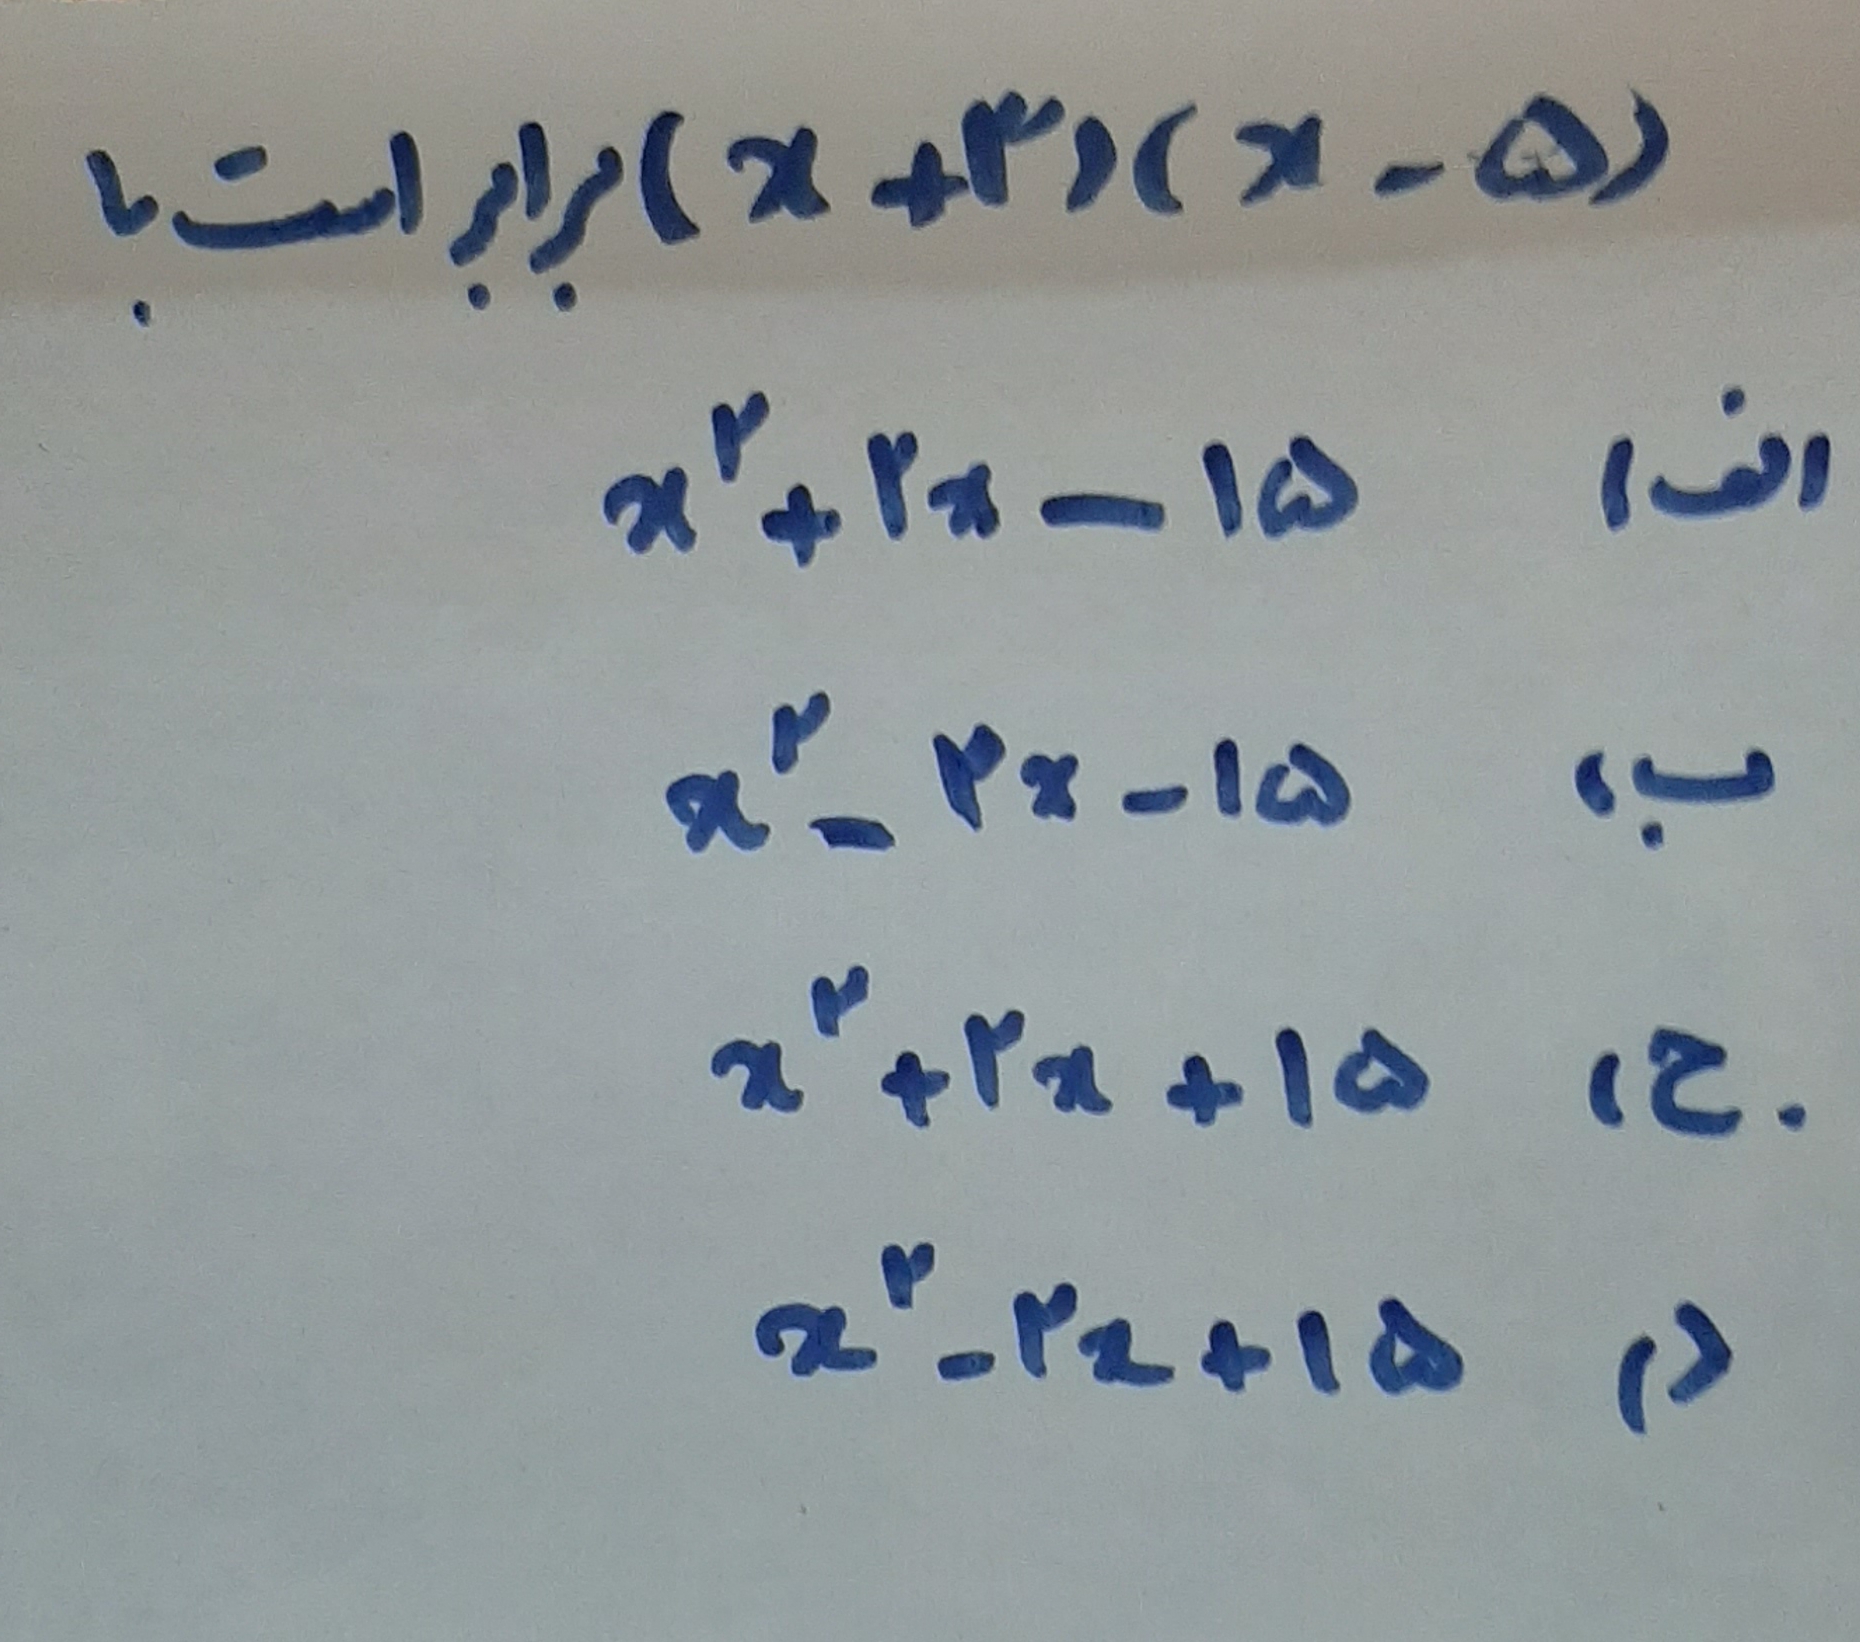 (x + ۳)(x - ۵) برابر است با
الف) x^۲ + ۲x - ۱۵
ب) x^۲ - ۲x - ۱۵
ج) x^۲ + ۲x + ۱۵
د) x^۲ - ۲x + ۱۵